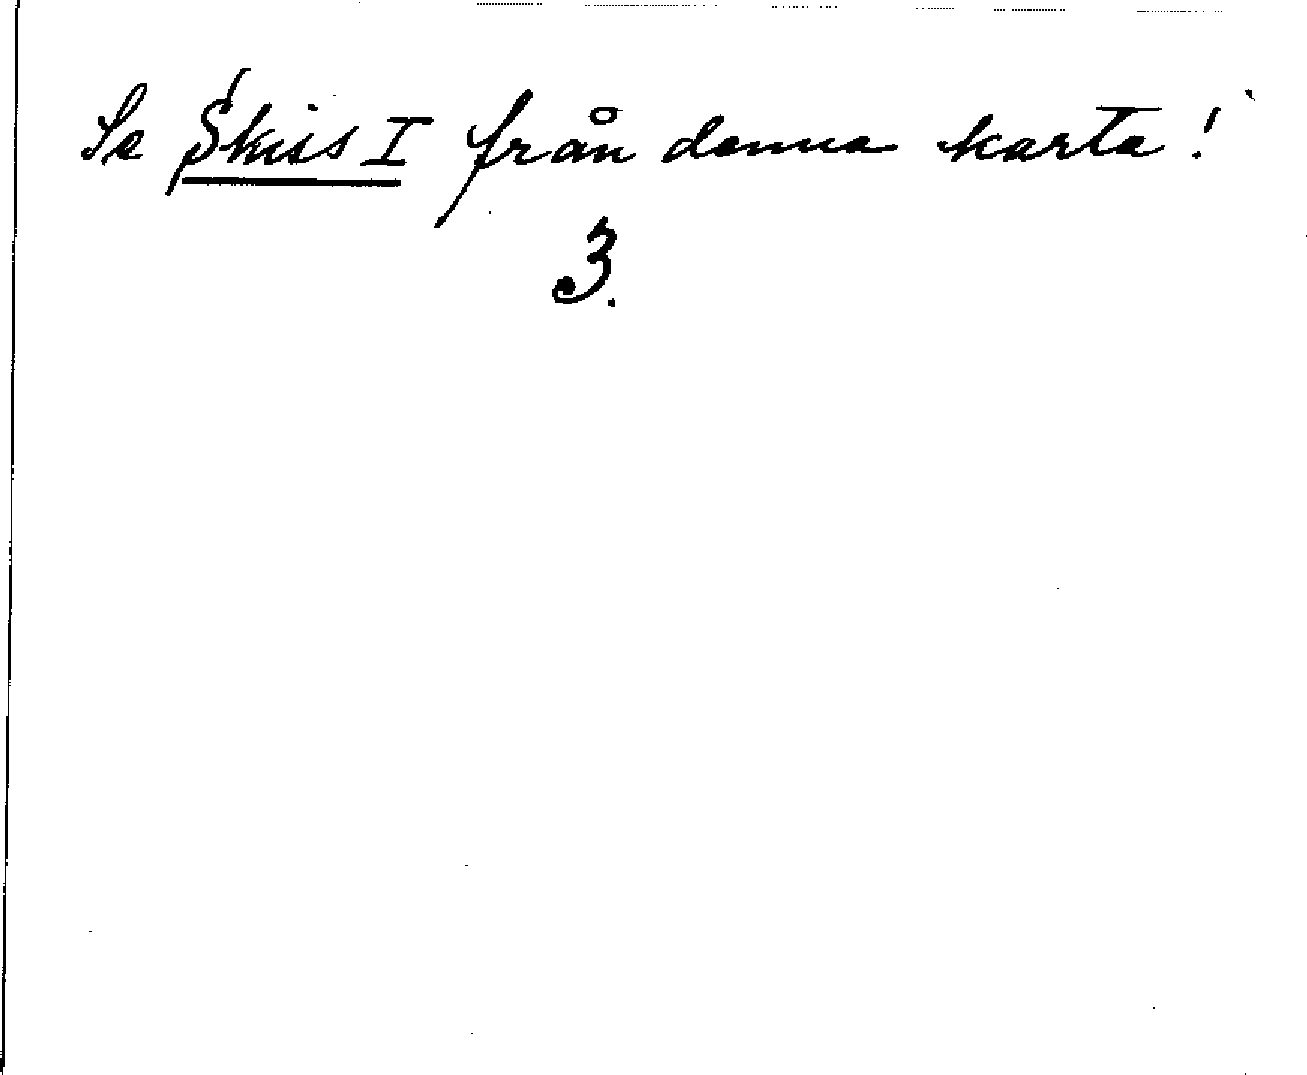 Se Skiss I från denna karta!
3.